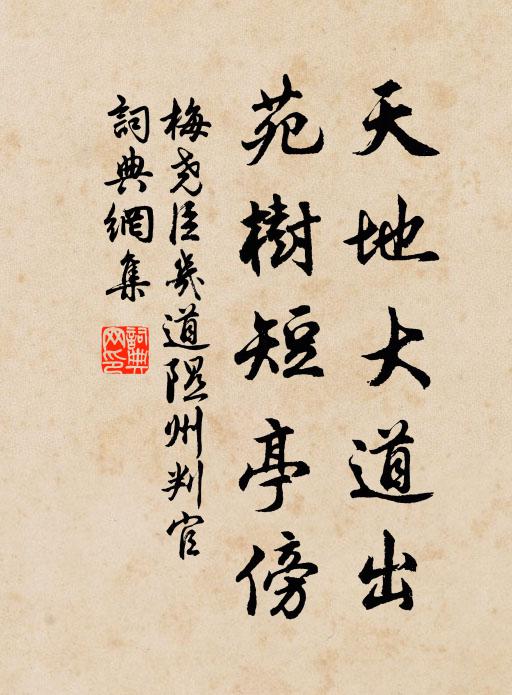 天地大道出
苑樹短亭傍
梅尧臣几道隰州判官
詞典網集
詞典网印